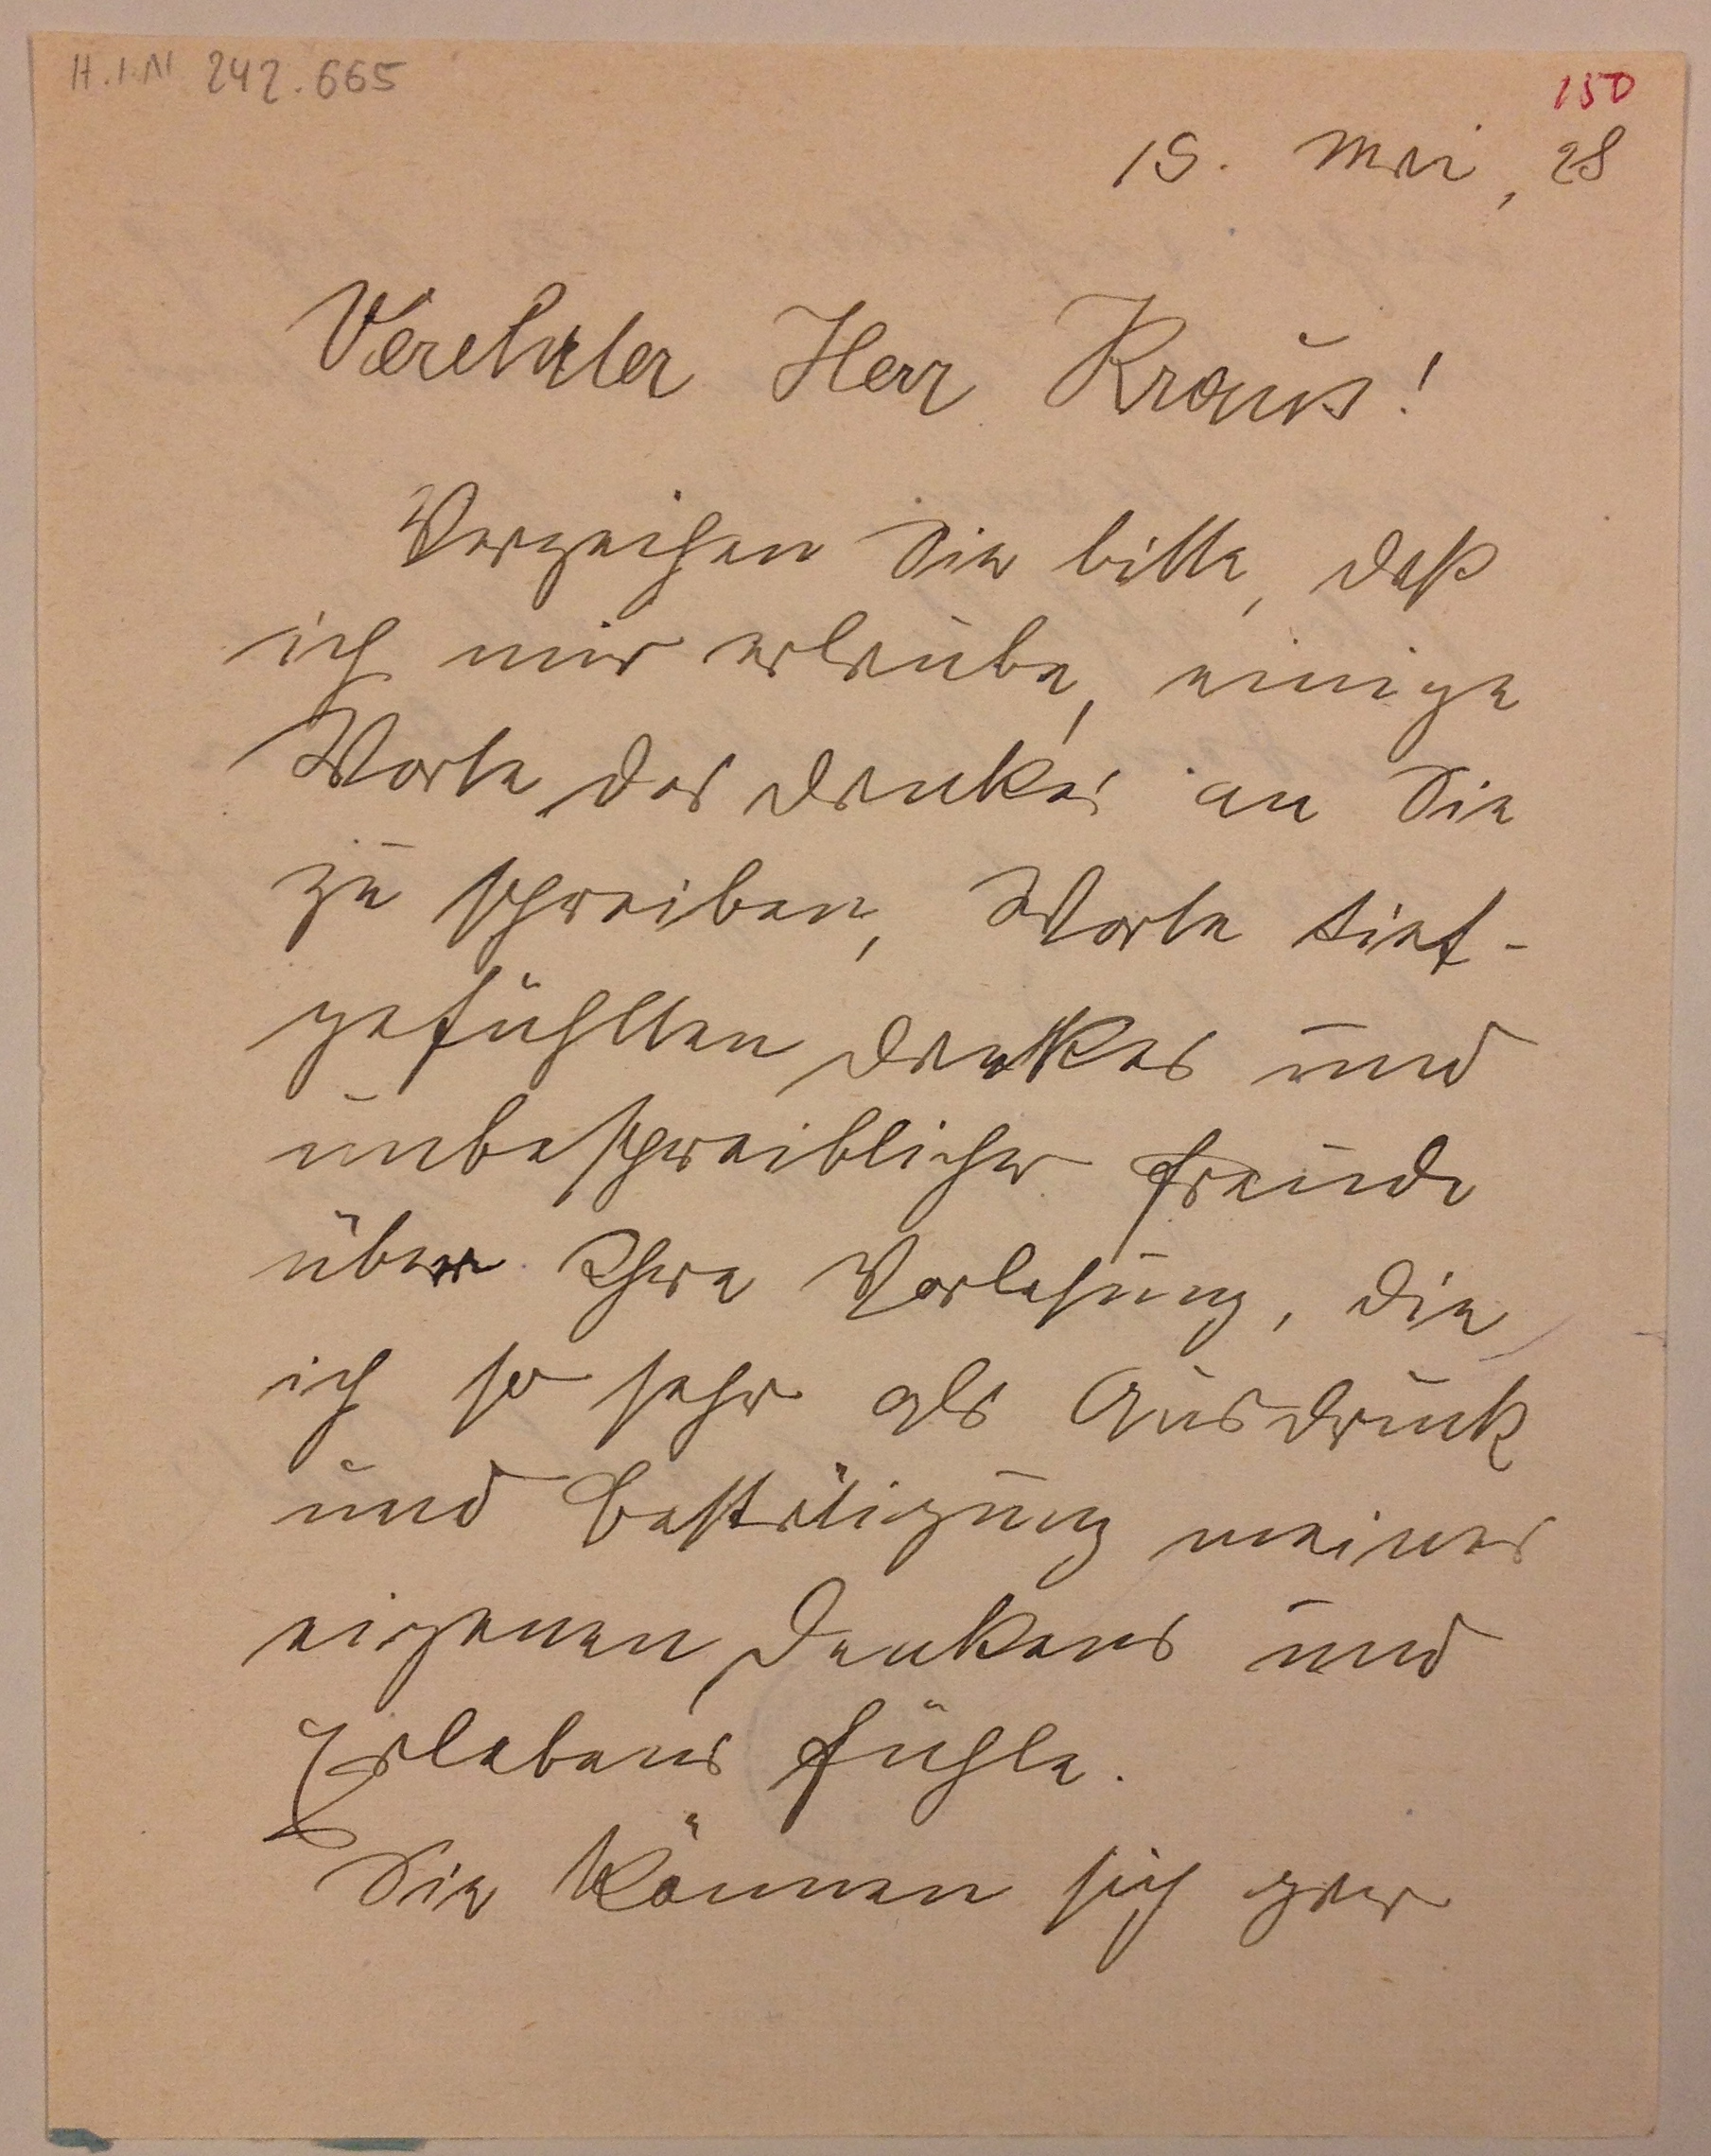 H.I.N. 242.665
150
15. Mai, 28
Verehrter Herr Kraus!
Verzeihen Sie bitte, daß
ich mir erlaube, einige
Worte des Dankes an Sie
zu schreiben, Worte tief-
gefühlten Dankes und
unbeschreiblicher Freude
über Ihre Vorlesung, die
ich so sehr als Ausdruck
und Bestätigung meines
eigenen Denkens und
Erlebens fühle.
Sie können sich gar